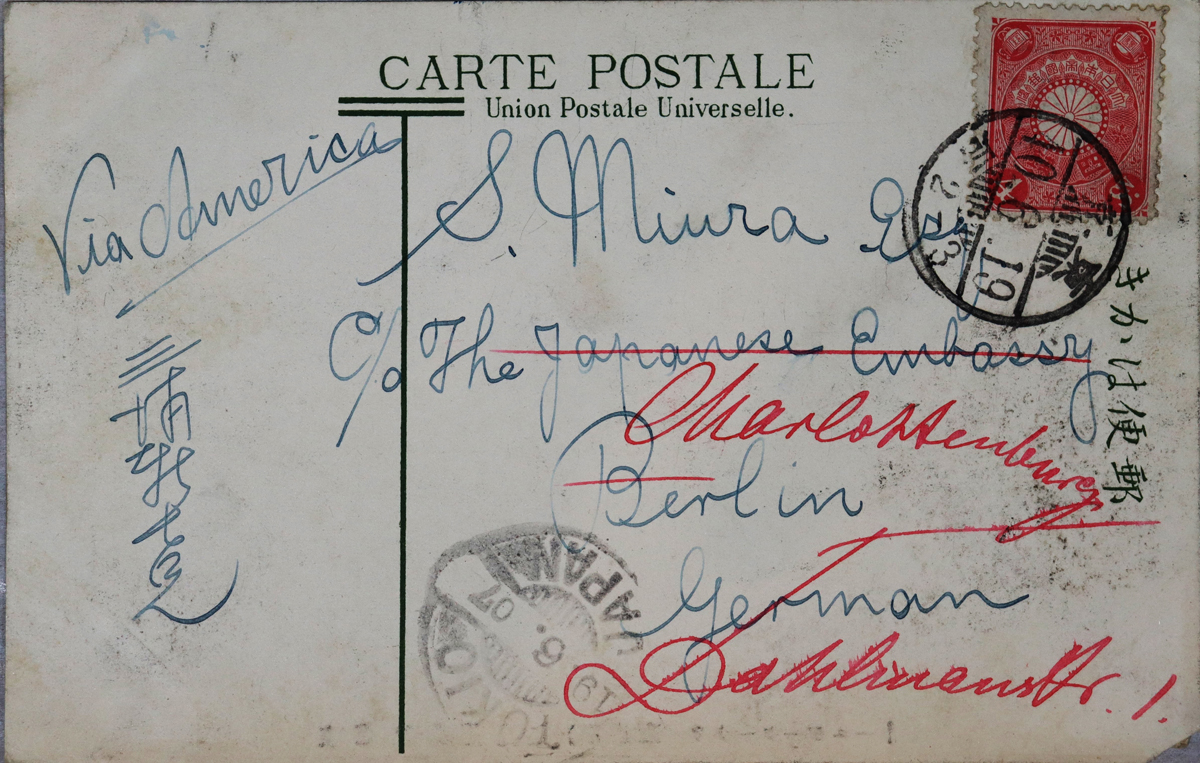 CARTE POSTALE
Union Postale Universelle.
Via America
S. Miura Esq
c/o The Japanese Embassy
Charlottenburg
Berlin
German
Dahlmannstr. 1.
きかは便郵
TOKIO
JAPAN
19
6.
07